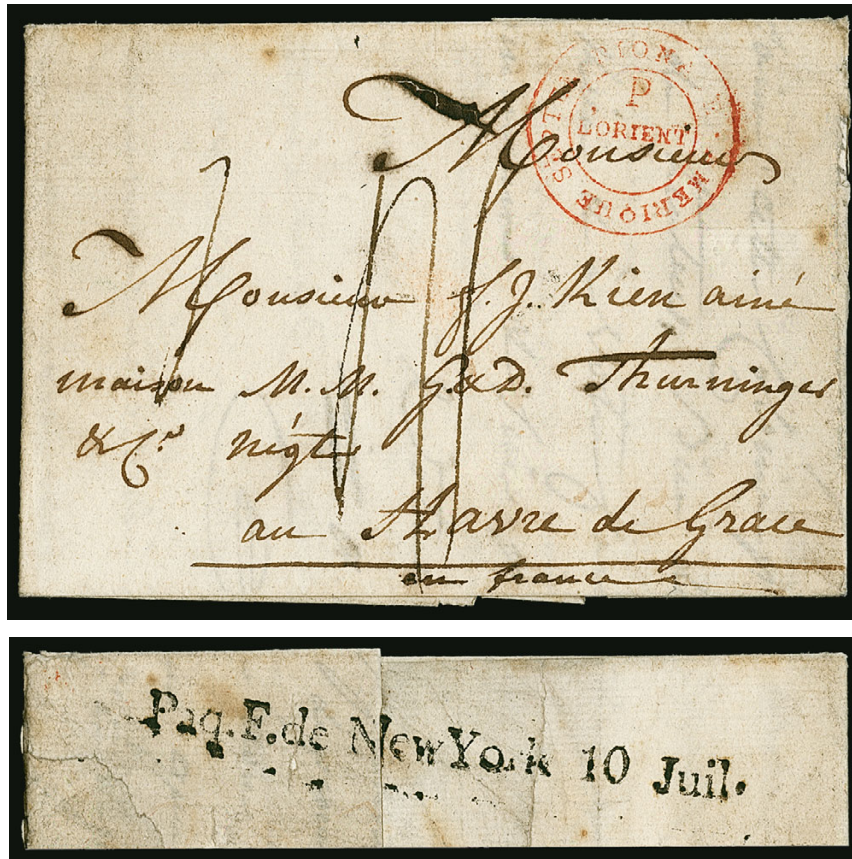 AMERIQUE SEPTENTRIONALE
P
LORIENT
Monsieur
Monsieur J. J. Kien ainé
maison M. M. G. & D. Thurninger
& Cie négts
au Havre de Grace
en france
Paq. F. de New York 10 Juil.